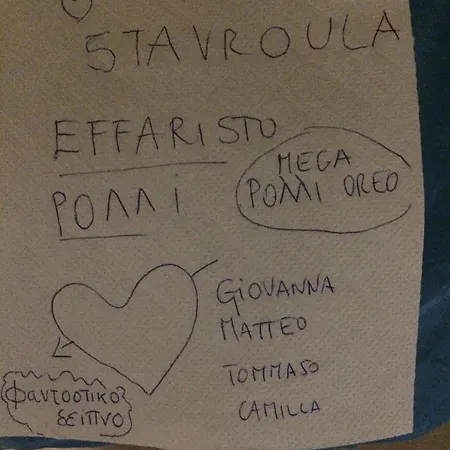 STAVROULA
EFFARISTO
ΡΟΛΛΙ
MEGA
ΡΟΛΛΙ OREO
GIOVANNA
MATTEO
TOMMASO
CAMILLA
φαντοστικο?
δειπνο